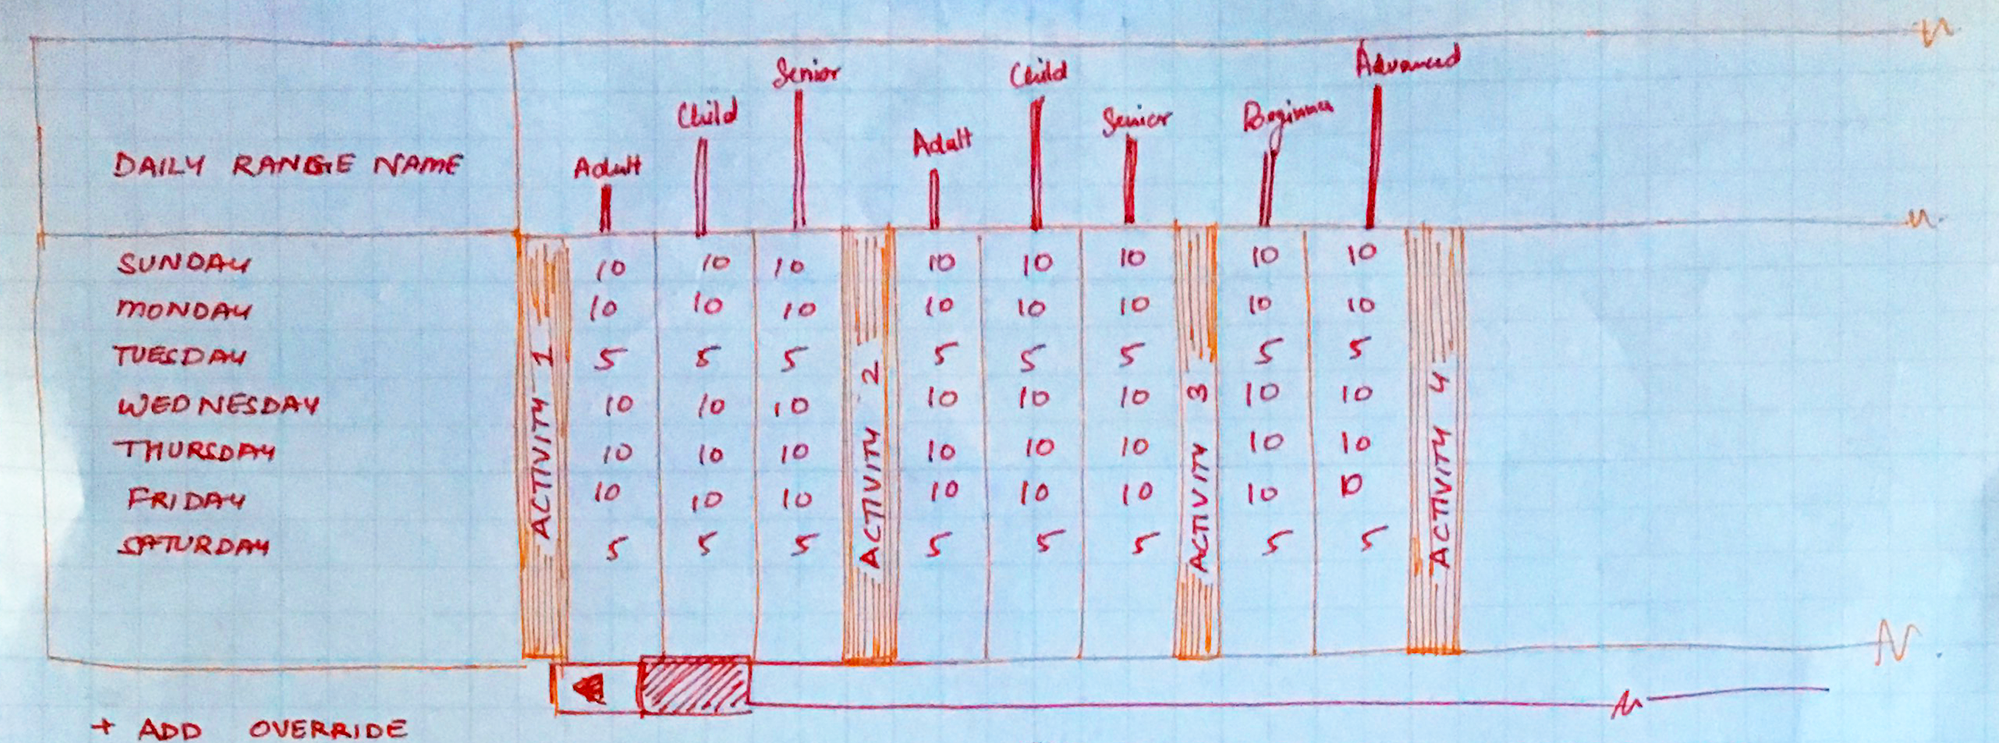 Senior Child Advanced
Child Senior Beginner
DAILY RANGE NAME Adult Adult
SUNDAY 10 10 10 10 10 10 10 10
MONDAY 10 10 10 10 10 10 10 10
TUESDAY 5 5 5 5 5 5 5 5
WEDNESDAY 10 10 10 10 10 10 10 10
THURSDAY 10 10 10 10 10 10 10 10
FRIDAY 10 10 10 10 10 10 10 10
SATURDAY 5 5 5 5 5 5 5 5
ACTIVITY 1
ACTIVITY 2
ACTIVITY 3
ACTIVITY 4
+ ADD OVERRIDE